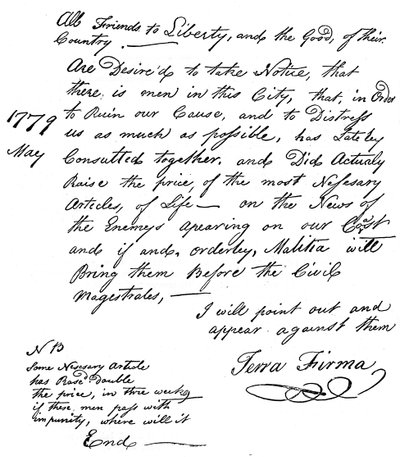 All Friends to Liberty, and the Good, of their
Country. —
Are Desire'd to take Notice, that
there is men in this City, that, in Order
to Ruin our Cause, and to Distress
us as much as possible, has Lateley
Consulted together, and Did Actualy
Raise the price, of the most Nesesary
Articles, of Life — on the News of
the Enemeys apearing on our Coast
and if and, orderley, Malitia will
Bring them Before the Civil
Magestrates, —
I will point out and
appear against them
Terra Firma,
1779
May
N B
Some Nesesary Article
has Rase'd Double
the price, in three weeks
if these men pass with
impunity, where will it
End —